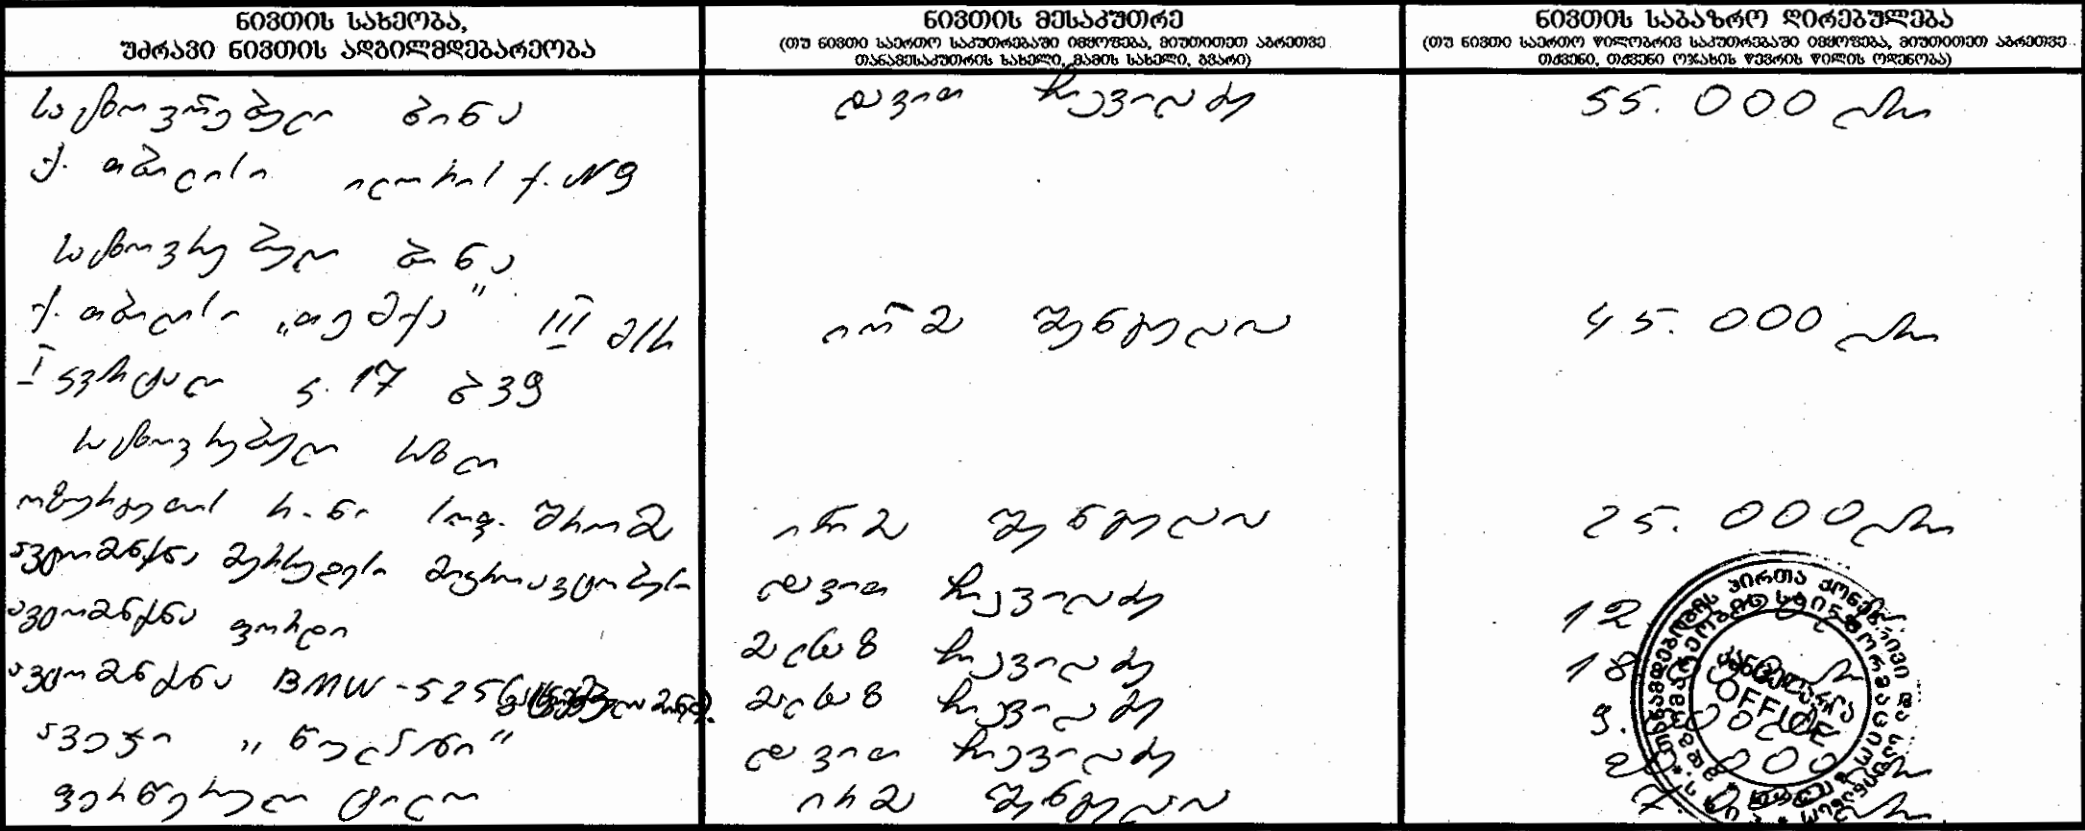 ნივთის სახეობა,
უძრავი ნივთის ადგილმდებარეობა
ნივთის მესაკუთრე
(თუ ნივთი საერთო საკუთრებაში იმყოფება, მიუთითეთ აგრეთვე
თანამესაკუთრის სახელი, მამის სახელი, გვარი)
ნივთის საბაზრო ღირებულება
(თუ ნივთი საერთო წილობრივ საკუთრებაში იმყოფება, მიუთითეთ აგრეთვე
თქვენი, თქვენი ოჯახის წევრის წილის ოდენობა)
საცხოვრებელი ბინა დავით ჩიკვილაძე 55.000 ლარი
ქ. თბილისი ილორის ქ. №9
საცხოვრებელი ბინა
ქ. თბილისი „თემქა" III მ/რ ირმა შენგელია 45.000 ლარი
I კვარტალი კ. 17 ბ 39
საცხოვრებელი სახლი
ოზურგეთის რ-ნი სოფ. შრომა ირმა შენგელია 25.000 ლარი
ავტომანქანა მერსედესი მიკროავტობუსი დავით ჩიკვილაძე 12
ავტომანქანა ფორდი მალხაზ ჩიკვილაძე 18
ავტომანქანა BMW-525 მალხაზ ჩიკვილაძე 9.
ავეჯი დავით ჩიკვილაძე
ფერწერული ტილო ირმა შენგელია
OFFICE